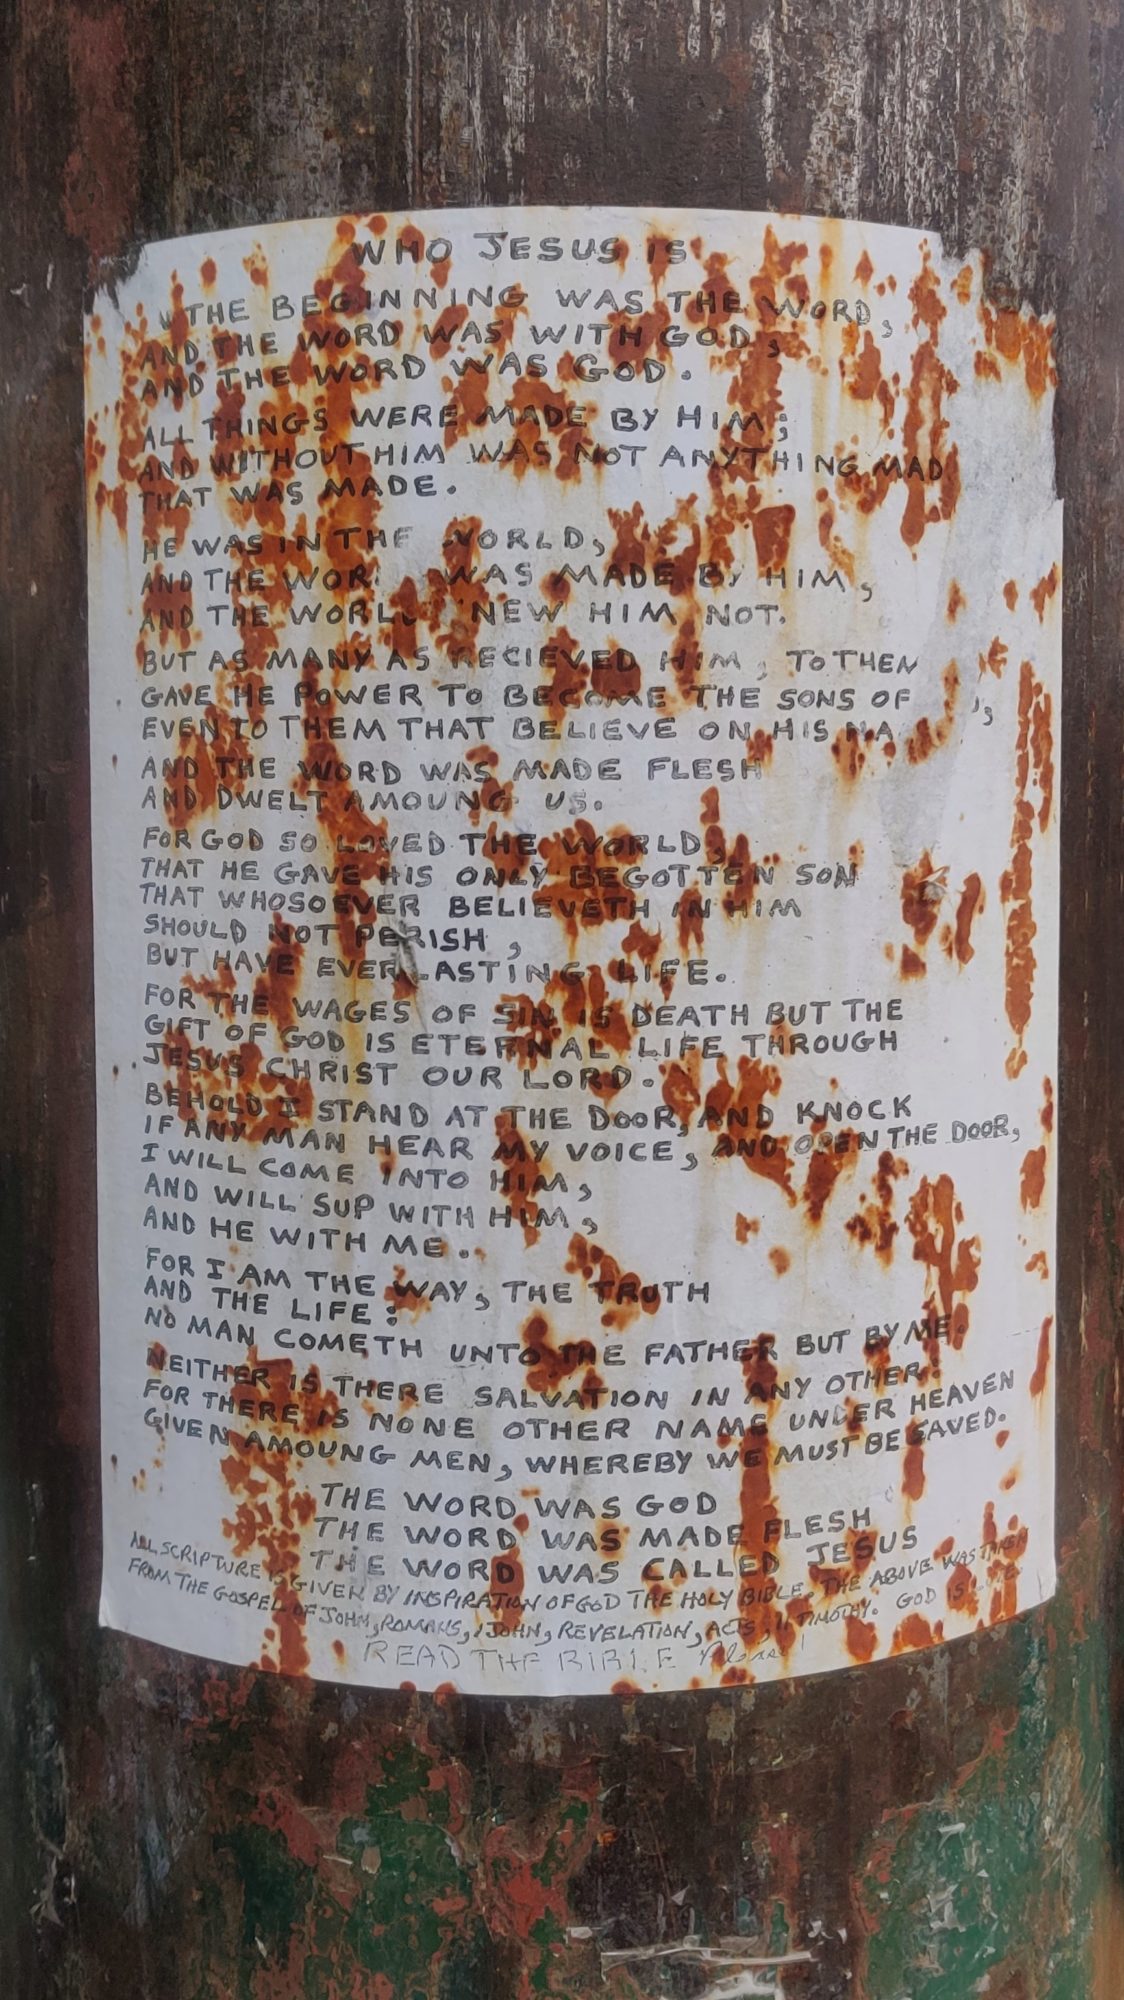 WHO JESUS IS
THE BEGINNING WAS THE WORD,
AND THE WORD WAS WITH GOD,
AND THE WORD WAS GOD.
ALL THINGS WERE MADE BY HIM;
AND WITHOUT HIM WAS NOT ANYTHING MAD
THAT WAS MADE.
HE WAS IN THE WORLD,
AND THE WOR WAS MADE BY HIM,
AND THE WORL NEW HIM NOT.
BUT AS MANY AS RECIEVED HIM, TO THEM
GAVE HE POWER TO BECOME THE SONS OF
EVEN TO THEM THAT BELIEVE ON HIS NA
AND THE WORD WAS MADE FLESH
AND DWELT AMOUNG US.
FOR GOD SO LOVED THE WORLD,
THAT HE GAVE HIS ONLY BEGOTTEN SON
THAT WHOSOEVER BELIEVETH IN HIM
SHOULD NOT PERISH,
BUT HAVE EVERLASTING LIFE.
FOR THE WAGES OF SIN IS DEATH BUT THE
GIFT OF GOD IS ETERNAL LIFE THROUGH
JESUS CHRIST OUR LORD.
BEHOLD I STAND AT THE DOOR, AND KNOCK
IF ANY MAN HEAR MY VOICE, AND OPEN THE DOOR,
I WILL COME INTO HIM,
AND WILL SUP WITH HIM,
AND HE WITH ME.
FOR I AM THE WAY, THE TRUTH
AND THE LIFE:
NO MAN COMETH UNTO THE FATHER BUT BY ME.
NEITHER IS THERE SALVATION IN ANY OTHER:
FOR THERE IS NONE OTHER NAME UNDER HEAVEN
GIVEN AMOUNG MEN, WHEREBY WE MUST BE SAVED.
THE WORD WAS GOD
THE WORD WAS MADE FLESH
THE WORD WAS CALLED JESUS
ALL SCRIPTURE IS GIVEN BY INSPIRATION OF GOD THE HOLY BIBLE. THE ABOVE WAS TAKEN
FROM THE GOSPEL OF JOHN, ROMANS, 1 JOHN, REVELATION, ACTS, II TIMOTHY. GOD IS
READ THE BIBLE Please!